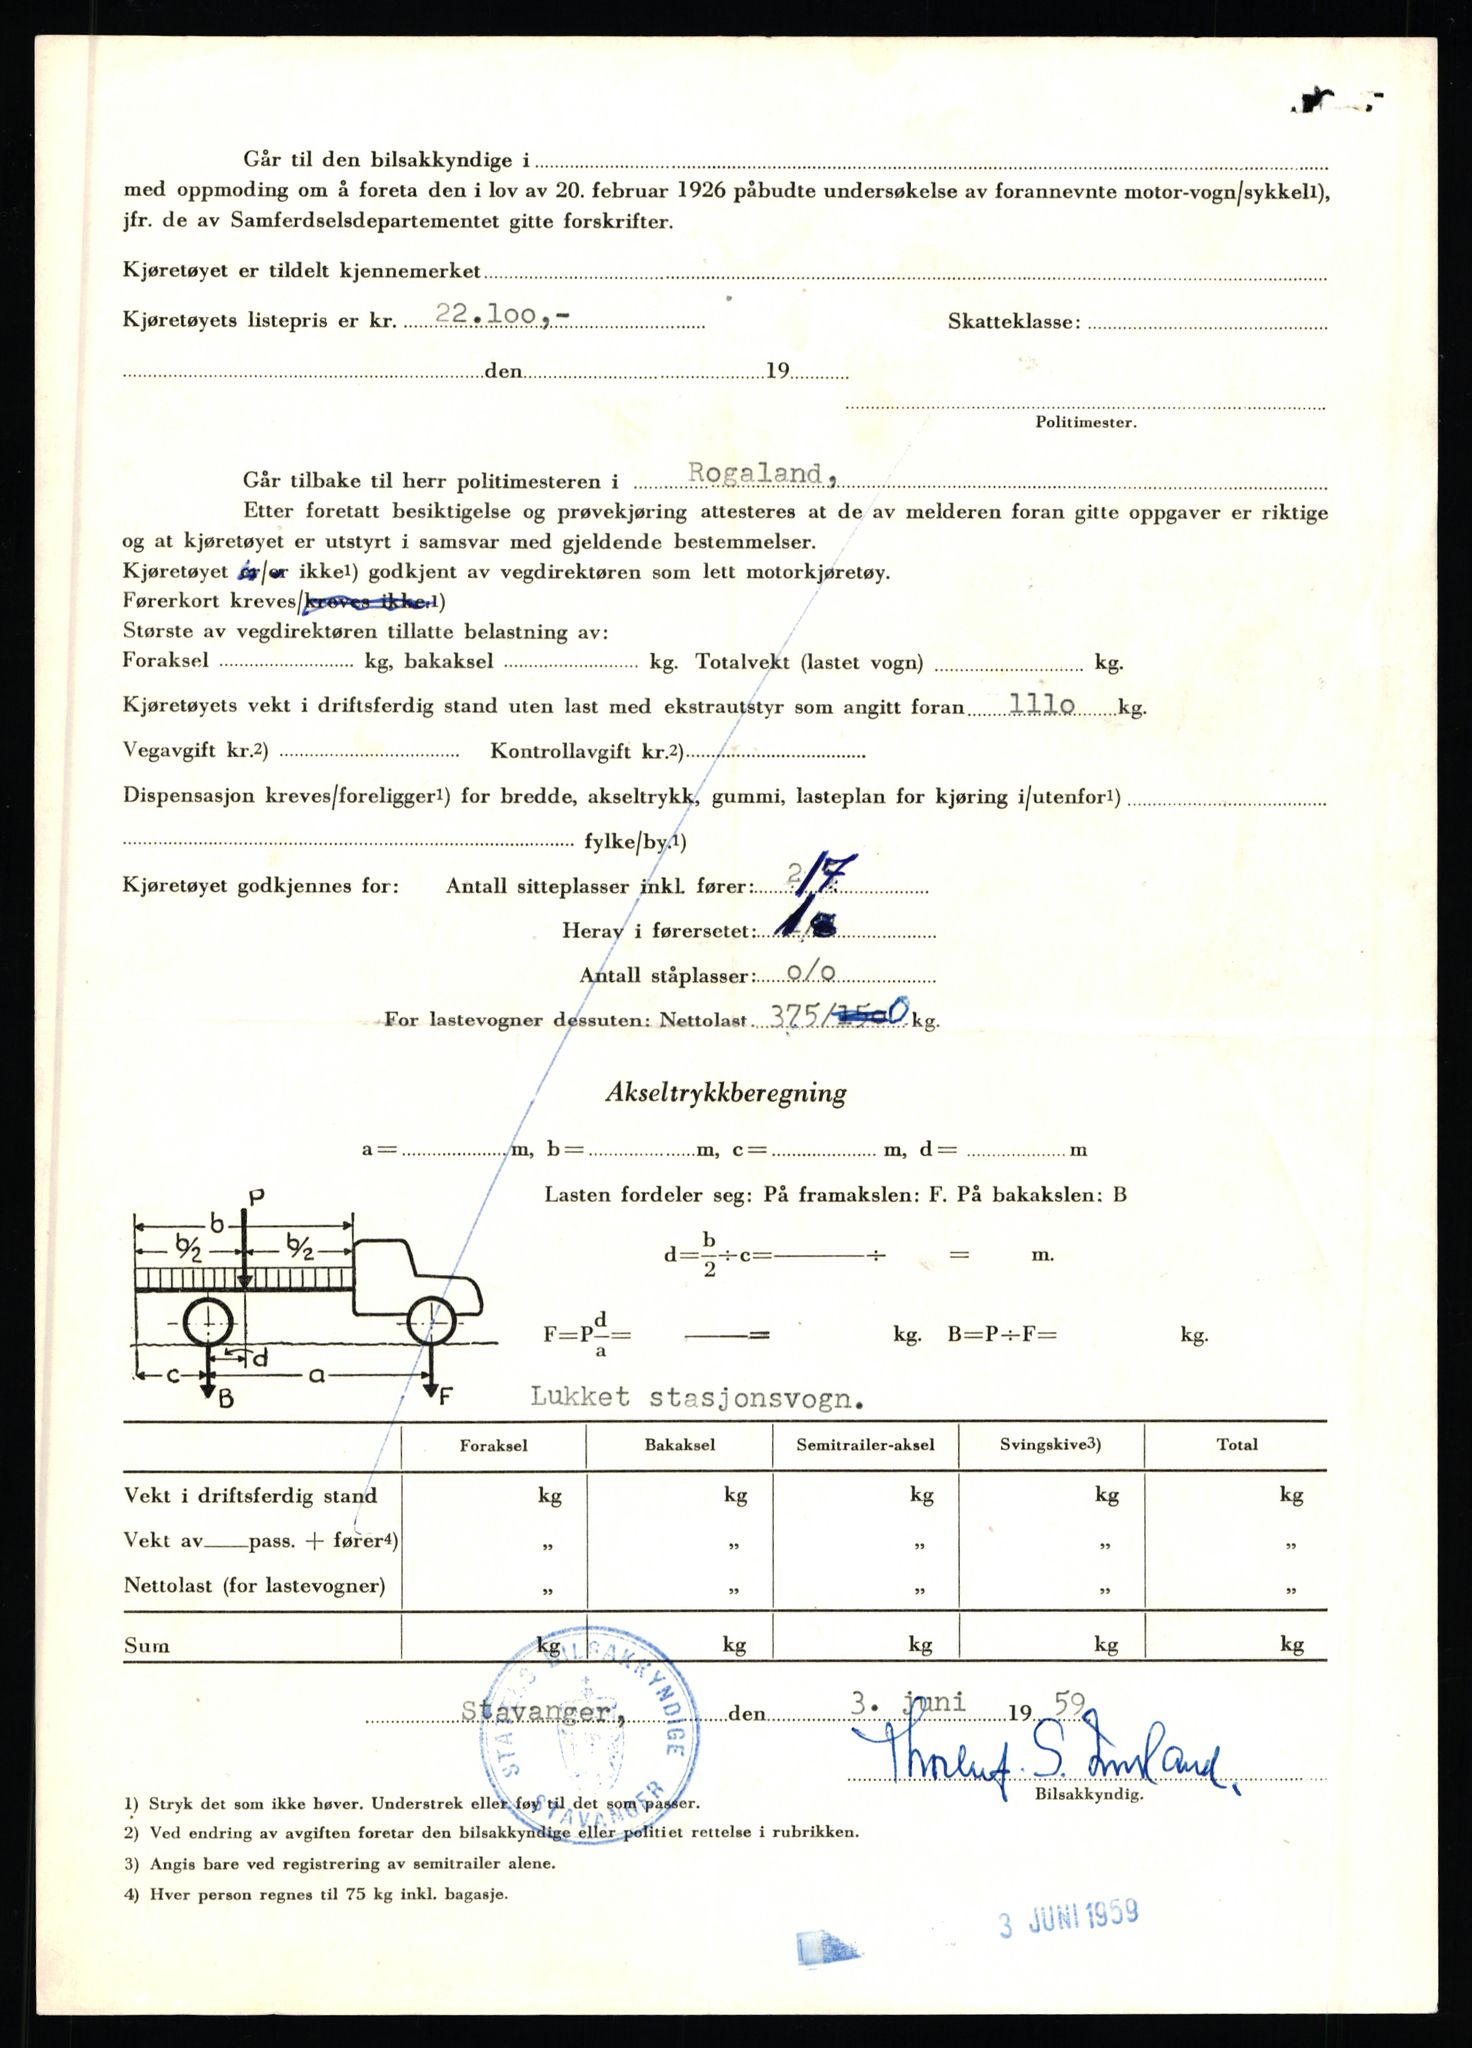 Går til den bilsakkyndige i
med oppmoding om å foreta den i lov av 20. februar 1926 påbudte undersøkelse av forannevnte motor-vogn/sykkel1),
jfr. de av Samferdselsdepartementet gitte forskrifter.
Kjøretøyet er tildelt kjennemerket
Kjøretøyets listepris er kr. 22.loo,- Skatteklasse:
den 19
Politimester.
Går tilbake til herr politimesteren i Rogaland,
Etter foretatt besiktigelse og prøvekjøring attesteres at de av melderen foran gitte oppgaver er riktige
og at kjøretøyet er utstyrt i samsvar med gjeldende bestemmelser.
Kjøretøyet er/er ikke1) godkjent av vegdirektøren som lett motorkjøretøy.
Førerkort kreves/kreves ikke.1)
Største av vegdirektøren tillatte belastning av:
Foraksel kg, bakaksel kg. Totalvekt (lastet vogn) kg.
Kjøretøyets vekt i driftsferdig stand uten last med ekstrautstyr som angitt foran lllo kg.
Vegavgift kr.2) Kontrollavgift kr.2)
Dispensasjon kreves/foreligger1) for bredde, akseltrykk, gummi, lasteplan for kjøring i/utenfor1)
fylke/by.1)
Kjøretøyet godkjennes for: Antall sitteplasser inkl. fører: 2/7
Herav i førersetet: 1
Antall ståplasser: o/o
For lastevogner dessuten: Nettolast 375/15o0 kg.
Akseltrykkberegning
a = m, b = m, c = m, d = m
Lasten fordeler seg: På framakslen: F. På bakakslen: B
d = b/2 ÷ c = ÷ = m.
F = P d/a = = kg. B = P ÷ F = kg.
P
b
b/2 b/2
d
c a
B F
Lukket stasjonsvogn.
Foraksel Bakaksel Semitrailer-aksel Svingskive3) Total
Vekt i driftsferdig stand kg kg kg kg kg
Vekt av pass. + fører4) „ „ „ „ „
Nettolast (for lastevogner) „ „ „ „ „
Sum kg kg kg kg kg
STATENS BILSAKKYNDIGE
STAVANGER
Stavanger, den 3. juni 19 59
Bilsakkyndig.
1) Stryk det som ikke høver. Understrek eller føy til det som passer.
2) Ved endring av avgiften foretar den bilsakkyndige eller politiet rettelse i rubrikken.
3) Angis bare ved registrering av semitrailer alene.
4) Hver person regnes til 75 kg inkl. bagasje.
3 JUNI 1959